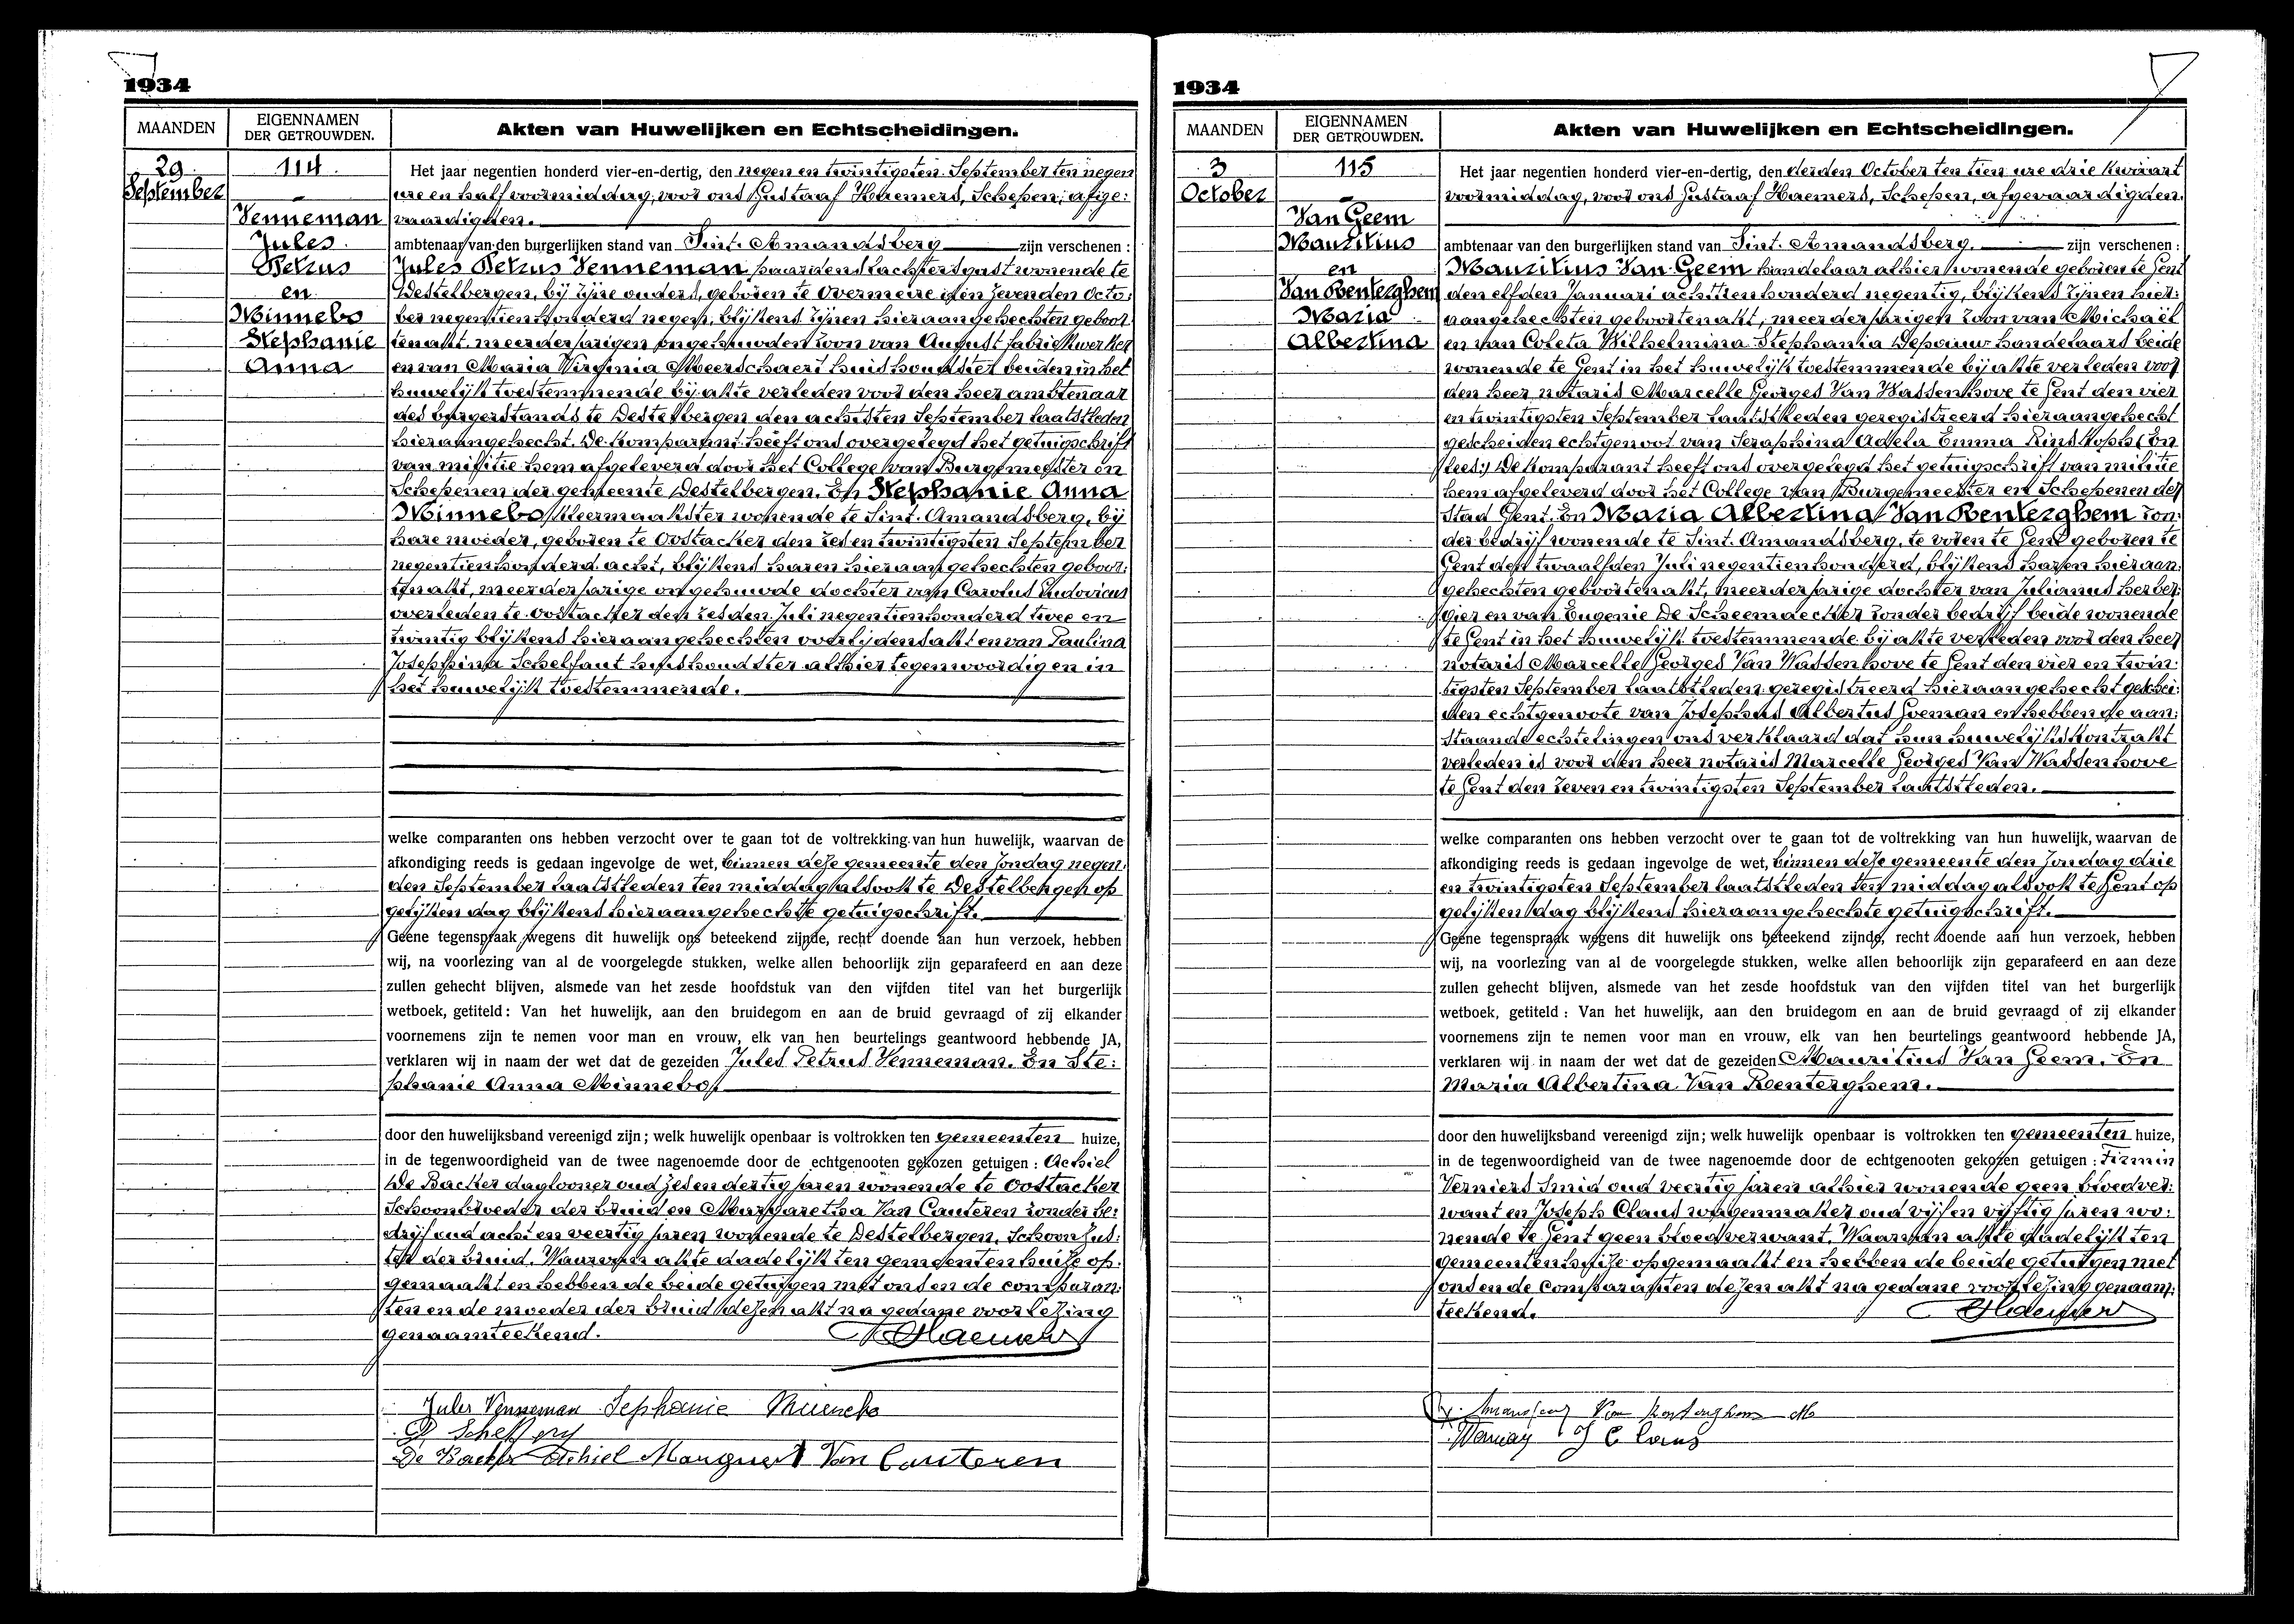 1934
MAANDEN
EIGENNAMEN
DER GETROUWDEN.
Akten van Huwelijken en Echtscheidingen.
29
September
114
Venneman
Jules
Petrus
en
Minnebo
Stephanie
Anna
Het jaar negentien honderd vier-en-dertig, den negen en twintigsten September ten negen
ure en half voormiddag, voor ons Gustaaf Haemers, Schepen, afge:
vaardigden.
ambtenaar van den burgerlijken stand van Sint. Amandsberg zijn verschenen :
Jules Petrus Venneman paardenslachtersgast wonende te
Destelbergen, bij zijne ouders, geboren te Overmeire den zevenden Octo:
ber negentienhonderd negen, blijkens zijnen hieraangehechten geboor:
tenakt. meerderjarigen ongehuwden zoon van August fabriekwerker
en van Maria Virginia Meerschaert huishoudster beiden in het
huwelijk toestemmende bij akte verleden voor den heer ambtenaar
des burgerstands te Destelbergen den achtsten September laatstleden
hieraangehecht. De komparant heeft ons overgelegd het getuigschrift
van militie hem afgeleverd door het College van Burgemeester en
Schepenen der gemeente Destelbergen. En Stephanie Anna
Minnebo kleermaakster wonende te Sint. Amandsberg, bij
hare moeder, geboren te Oostacker den zes en twintigsten September
negentienhonderd acht, blijkens haren hieraangehechten geboor:
tenakt, meerderjarige ongehuwde dochter van Carolus Ludovicus
overleden te Oostacker den zesden Juli negentienhonderd twee en
twintig blijkens hieraangehechten overlijdensakt en van Paulina
Josephina Schelfaut huishoudster alhier tegenwoordig en in
het huwelijk toestemmende.
welke comparanten ons hebben verzocht over te gaan tot de voltrekking van hun huwelijk, waarvan de
afkondiging reeds is gedaan ingevolge de wet, binnen deze gemeente den Zondag negen:
den September laatstleden ten middag alsook te Destelbergen op
gelijken dag blijkens hieraangehechte getuigschrift.
Geene tegenspraak wegens dit huwelijk ons beteekend zijnde, recht doende aan hun verzoek, hebben
wij, na voorlezing van al de voorgelegde stukken, welke allen behoorlijk zijn geparafeerd en aan deze
zullen gehecht blijven, alsmede van het zesde hoofdstuk van den vijfden titel van het burgerlijk
wetboek, getiteld : Van het huwelijk, aan den bruidegom en aan de bruid gevraagd of zij elkander
voornemens zijn te nemen voor man en vrouw, elk van hen beurtelings geantwoord hebbende JA,
verklaren wij in naam der wet dat de gezeiden Jules Petrus Venneman. En Ste:
phanie Anna Minnebo.
door den huwelijksband vereenigd zijn; welk huwelijk openbaar is voltrokken ten gemeenten huize,
in de tegenwoordigheid van de twee nagenoemde door de echtgenooten gekozen getuigen : Achiel
De Backer daglooner oud zes en dertig jaren wonende te Oostacker
Schoonbroeder der bruid en Margaretha Van Cauteren zonder be:
drijf oud acht en veertig jaren wonende te Destelbergen, Schoonzus:
ter der bruid. Waarvan akte dadelijk ten gemeentenhuize op:
gemaakt en hebben de beide getuigen met ons en de comparan:
ten en de moeder der bruid dezen akt na gedane voorlezing
genaamteekend. Haemers
Jules Venneman Stephanie Minnebo
De Backer Achiel Margueri Van Cauteren
1934
MAANDEN
EIGENNAMEN
DER GETROUWDEN.
Akten van Huwelijken en Echtscheidingen.
3
October
115
Van Geem
Mauritius
en
Van Renterghem
Maria
Albertina
Het jaar negentien honderd vier-en-dertig, den derden October ten tien ure drie kwaart
voormiddag, voor ons Gustaaf Haemers, Schepen, afgevaardigden.
ambtenaar van den burgerlijken stand van Sint. Amandsberg. zijn verschenen :
Mauritius Van Geem handelaar alhier wonende geboren te Gent
den elfden Januari achttienhonderd negentig, blijkens zijnen hier:
aangehechten geboortenakt, meerderjarigen zoon van Michaël
en van Coleta Wilhelmina Stephania Depauw handelaars beide
wonende te Gent in het huwelijk toestemmende bij akte verleden voor
den heer notaris Marcelle Georges Van Wassenhove te Gent den vier
en twintigsten September laatstleden geregistreerd hieraangehecht
gescheiden echtgenoot van Seraphina Adela Emma Rinskopf (En
lees:) De komparant heeft ons overgelegd het getuigschrift van militie
hem afgeleverd door het College van Burgemeester en Schepenen der
Stad Gent. En Maria Albertina Van Renterghem zon:
der bedrijf wonende te Sint. Amandsberg, te voren te Gent geboren te
Gent den twaalfden Juli negentienhonderd, blijkens haren hieraan:
gehechten geboortenakt, meerderjarige dochter van Julianus herber:
gier en van Eugenie De Scheemaecker zonder bedrijf beide wonende
te Gent in het huwelijk toestemmende bij akte verleden voor den heer
notaris Marcelle Georges Van Wassenhove te Gent den vier en twin:
tigsten September laatstleden geregistreerd hieraangehecht geschei:
den echtgenoote van Josephus Albertus Goeman en hebben de aan:
staande echtelingen ons verklaard dat hun huwelijkskontrakt
verleden is voor den heer notaris Marcelle Georges Van Wassenhove
te Gent den zeven en twintigsten September laatstleden.
welke comparanten ons hebben verzocht over te gaan tot de voltrekking van hun huwelijk, waarvan de
afkondiging reeds is gedaan ingevolge de wet, binnen deze gemeente den Zondag drie
en twintigsten September laatstleden ten middag alsook te Gent op
gelijken dag blijkens hieraangehechte getuigschrift.
Geene tegenspraak wegens dit huwelijk ons beteekend zijnde, recht doende aan hun verzoek, hebben
wij, na voorlezing van al de voorgelegde stukken, welke allen behoorlijk zijn geparafeerd en aan deze
zullen gehecht blijven, alsmede van het zesde hoofdstuk van den vijfden titel van het burgerlijk
wetboek, getiteld : Van het huwelijk, aan den bruidegom en aan de bruid gevraagd of zij elkander
voornemens zijn te nemen voor man en vrouw, elk van hen beurtelings geantwoord hebbende JA,
verklaren wij in naam der wet dat de gezeiden Mauritius Van Geem. En
Maria Albertina Van Renterghem.
door den huwelijksband vereenigd zijn; welk huwelijk openbaar is voltrokken ten gemeenten huize,
in de tegenwoordigheid van de twee nagenoemde door de echtgenooten gekozen getuigen : Firmin
Verniers Smid oud veertig jaren alhier wonende geen bloedver:
want en Joseph Claus wagenmaker oud vijf en vijftig jaren wo:
nende te Gent geen bloedverwant. Waarvan akte dadelijk ten
gemeentenhuize opgemaakt en hebben de beide getuigen met
ons en de comparanten dezen akt na gedane voorlezing genaam:
teekend. Haemers
Van Renterghem M
J Claus